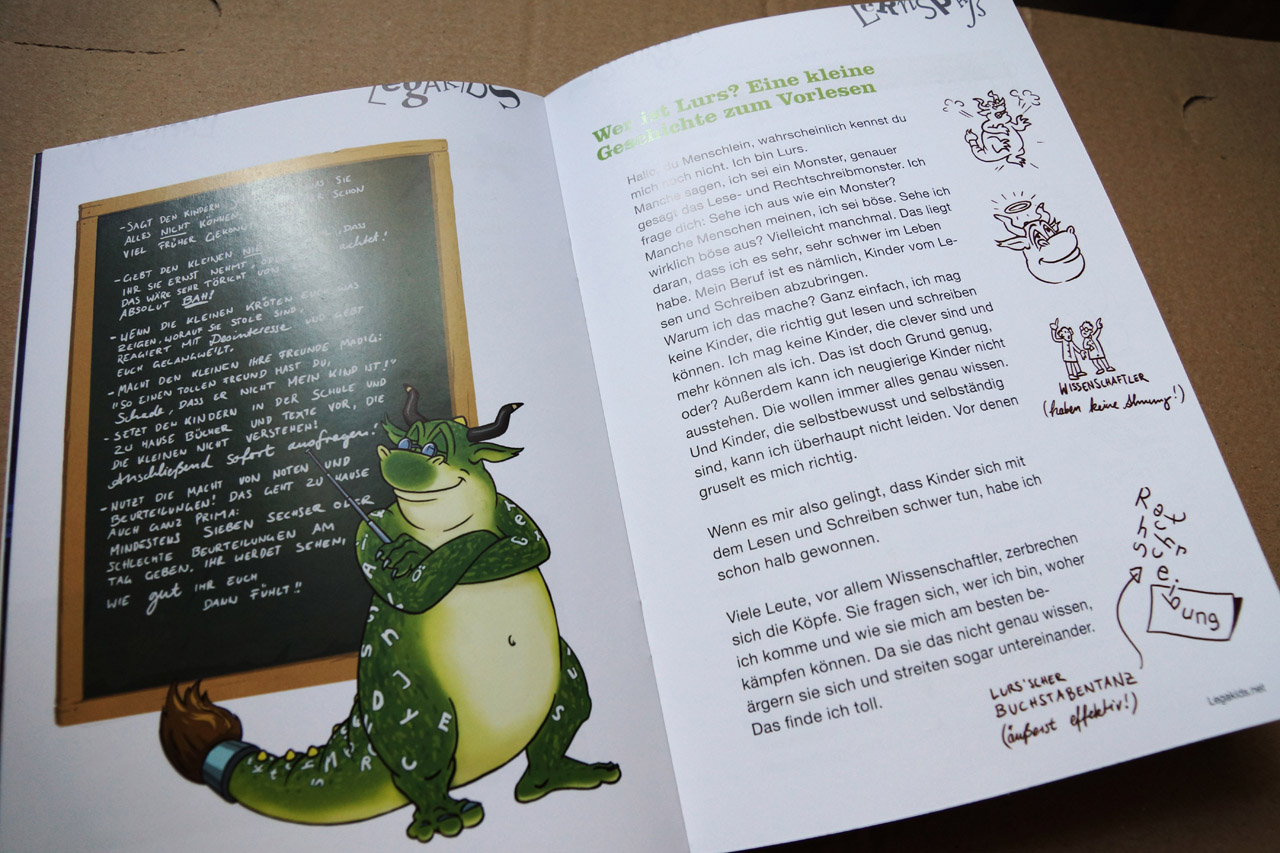 LegaKIDS
-SAGT DEN KINDERN SIE
ALLES NICHT KÖNNEN SCHON
VIEL FRÜHER GEKONNT
-GEBT DEN KLEINEN DASS
IHR SIE ERNST NEHMT, achtet!
DAS WÄRE SEHR TÖRICHT UND
ABSOLUT BÄH!
-WENN DIE KLEINEN KRÖTEN EUCH WAS
ZEIGEN, WORAUF SIE STOLZ SIND
REAGIERT MIT Desinteresse UND GEBT
EUCH GELANGWEILT.
-MACHT DEN KLEINEN IHRE FREUNDE MADIG:
"SO EINEN TOLLEN FREUND HAST DU,
Schade, DASS ER NICHT MEIN KIND IST!"
-SETZT DEN KINDERN IN DER SCHULE UND
ZU HAUSE BÜCHER UND TEXTE VOR, DIE
DIE KLEINEN NICHT VERSTEHEN!
Anschließend sofort ausfragen!
-NUTZT DIE MACHT VON NOTEN UND
BEURTEILUNGEN! DAS GEHT ZU HAUSE
AUCH GANZ PRIMA:
MINDESTENS SIEBEN SECHSER ODER
SCHLECHTE BEURTEILUNGEN AM
TAG GEBEN. IHR WERDET SEHEN,
WIE gut IHR EUCH
DANN FÜHLT!!
Wer ist Lurs? Eine kleine
Geschichte zum Vorlesen
Hallo du Menschlein, wahrscheinlich kennst du
mich noch nicht. Ich bin Lurs.
Manche sagen, ich sei ein Monster, genauer
gesagt das Lese- und Rechtschreibmonster. Ich
frage dich: Sehe ich aus wie ein Monster?
Manche Menschen meinen, ich sei böse. Sehe ich
wirklich böse aus? Vielleicht manchmal. Das liegt
daran, dass ich es sehr, sehr schwer im Leben
habe. Mein Beruf ist es nämlich, Kinder vom Le-
sen und Schreiben abzubringen.
Warum ich das mache? Ganz einfach, ich mag
keine Kinder, die richtig gut lesen und schreiben
können. Ich mag keine Kinder, die clever sind und
mehr können als ich. Das ist doch Grund genug,
oder? Außerdem kann ich neugierige Kinder nicht
ausstehen. Die wollen immer alles genau wissen.
Und Kinder, die selbstbewusst und selbständig
sind, kann ich überhaupt nicht leiden. Vor denen
gruselt es mich richtig.
Wenn es mir also gelingt, dass Kinder sich mit
dem Lesen und Schreiben schwer tun, habe ich
schon halb gewonnen.
Viele Leute, vor allem Wissenschaftler, zerbrechen
sich die Köpfe. Sie fragen sich, wer ich bin, woher
ich komme und wie sie mich am besten be-
kämpfen können. Da sie das nicht genau wissen,
ärgern sie sich und streiten sogar untereinander.
Das finde ich toll.
WISSENSCHAFTLER
(haben keine Ahnung!)
LURS'SCHER
BUCHSTABENTANZ
(äußerst effektiv!)
Legakids.net